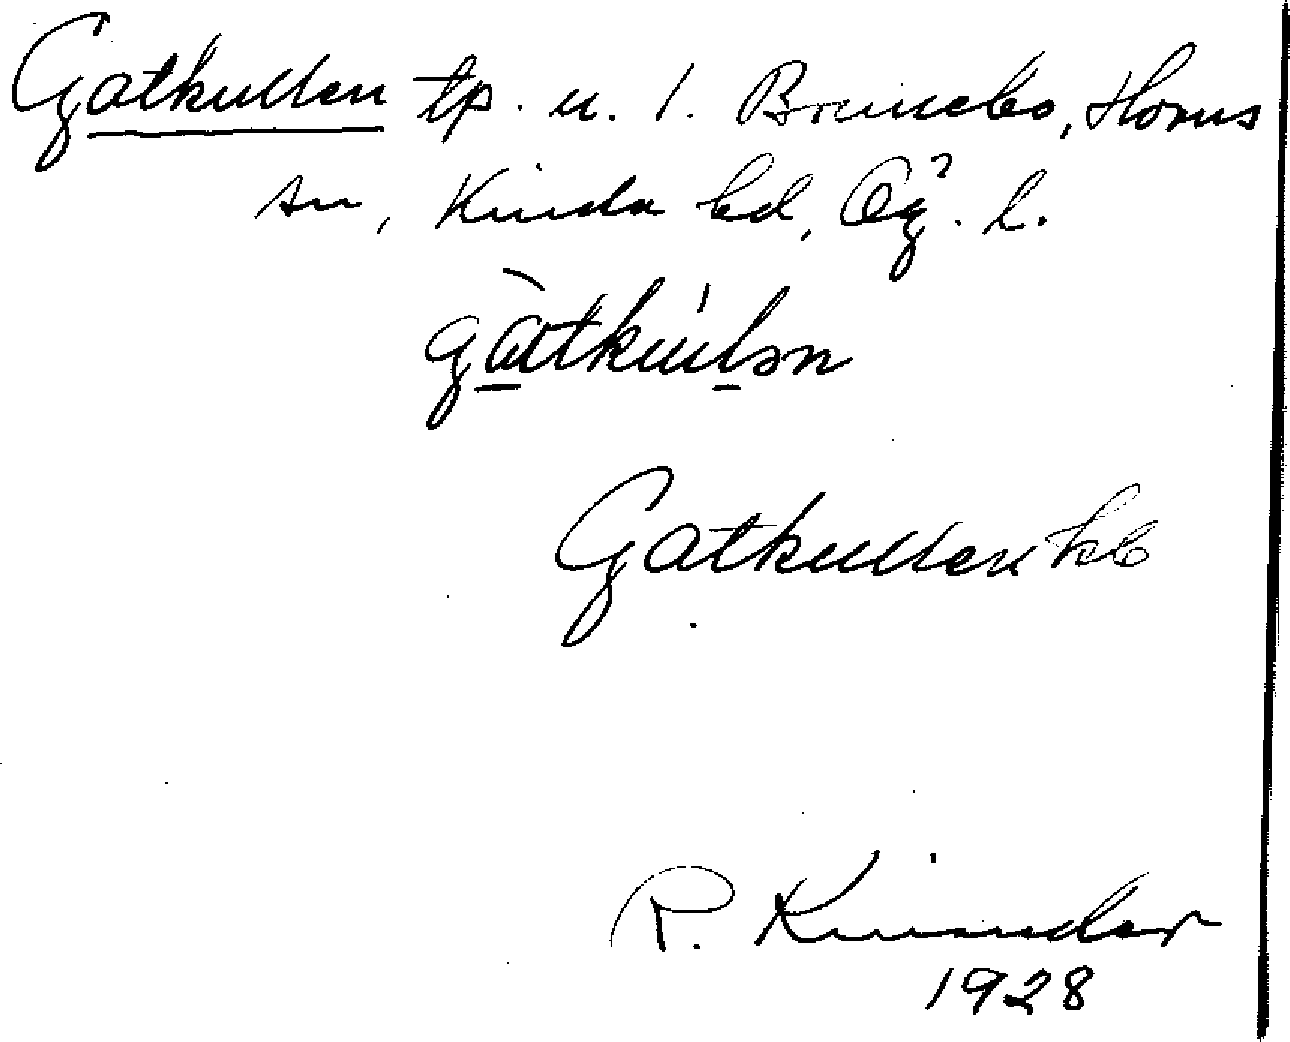 Gatkullen tp. u. 1. Brunebo, Horns
sn, Kinda hd, Ög. l.
gàtkúlən
Gatkullen kb
R.
1928